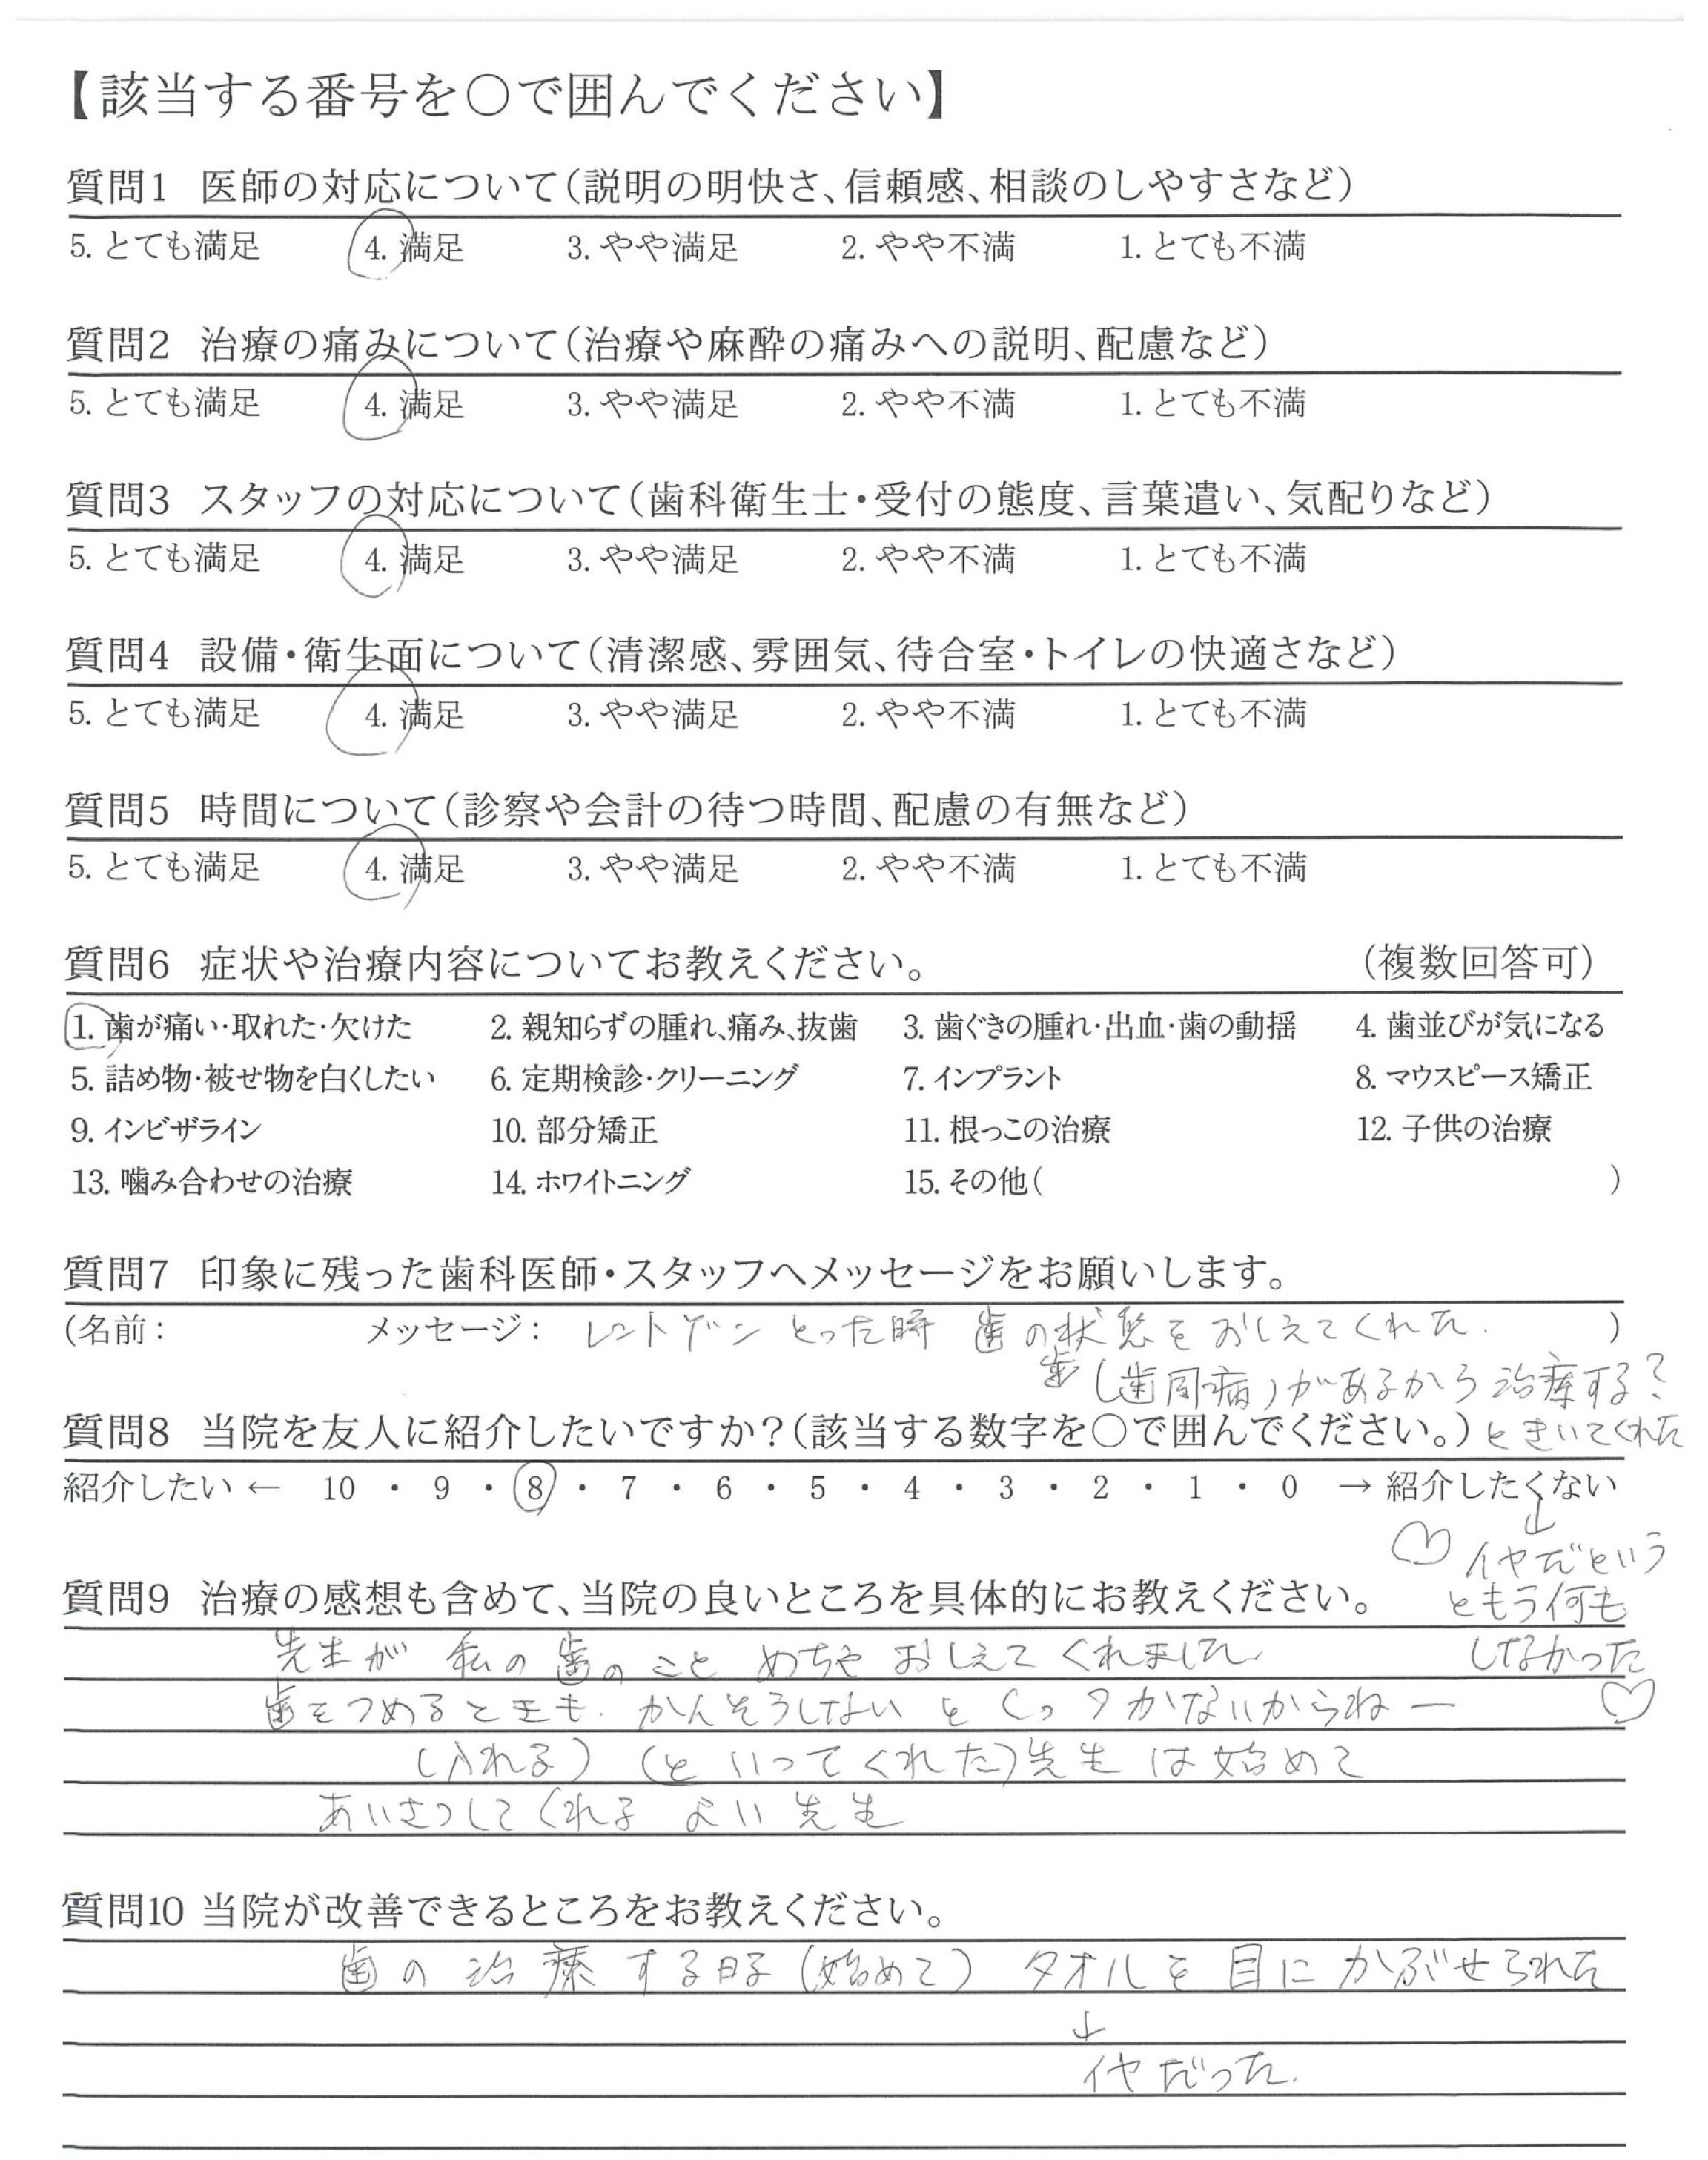 【該当する番号を○で囲んでください】
質問1 医師の対応について(説明の明快さ、信頼感、相談のしやすさなど)
5. とても満足 4. 満足 3. やや満足 2. やや不満 1. とても不満
質問2 治療の痛みについて(治療や麻酔の痛みへの説明、配慮など)
5. とても満足 4. 満足 3. やや満足 2. やや不満 1. とても不満
質問3 スタッフの対応について(歯科衛生士・受付の態度、言葉遣い、気配りなど)
5. とても満足 4. 満足 3. やや満足 2. やや不満 1. とても不満
質問4 設備・衛生面について(清潔感、雰囲気、待合室・トイレの快適さなど)
5. とても満足 4. 満足 3. やや満足 2. やや不満 1. とても不満
質問5 時間について(診察や会計の待つ時間、配慮の有無など)
5. とても満足 4. 満足 3. やや満足 2. やや不満 1. とても不満
質問6 症状や治療内容についてお教えください。 (複数回答可)
1. 歯が痛い・取れた・欠けた 2. 親知らずの腫れ、痛み、抜歯 3. 歯ぐきの腫れ・出血・歯の動揺 4. 歯並びが気になる
5. 詰め物・被せ物を白くしたい 6. 定期検診・クリーニング 7. インプラント 8. マウスピース矯正
9. インビザライン 10. 部分矯正 11. 根っこの治療 12. 子供の治療
13. 噛み合わせの治療 14. ホワイトニング 15. その他( )
質問7 印象に残った歯科医師・スタッフへメッセージをお願いします。
(名前: メッセージ: レントゲン とった時 歯の状態をおしえてくれた. )
歯(歯周病)があるから治療する?
質問8 当院を友人に紹介したいですか?(該当する数字を○で囲んでください。) ときいてくれた
紹介したい ← 10 ・ 9 ・ 8 ・ 7 ・ 6 ・ 5 ・ 4 ・ 3 ・ 2 ・ 1 ・ 0 → 紹介したくない
↓
♡ イヤだという
質問9 治療の感想も含めて、当院の良いところを具体的にお教えください。 ともう何も
先生が 私の歯のこと めちゃ おしえてくれました. しなかった
歯をつめるときも. かんそうしない と くっつかないからねー ♡
(入れる) (といってくれた)先生は始めて
あいさつしてくれる よい先生
質問10 当院が改善できるところをお教えください。
歯の 治療 する時 (始めて) タオルを 目に かぶせられた
↓
イヤだった.